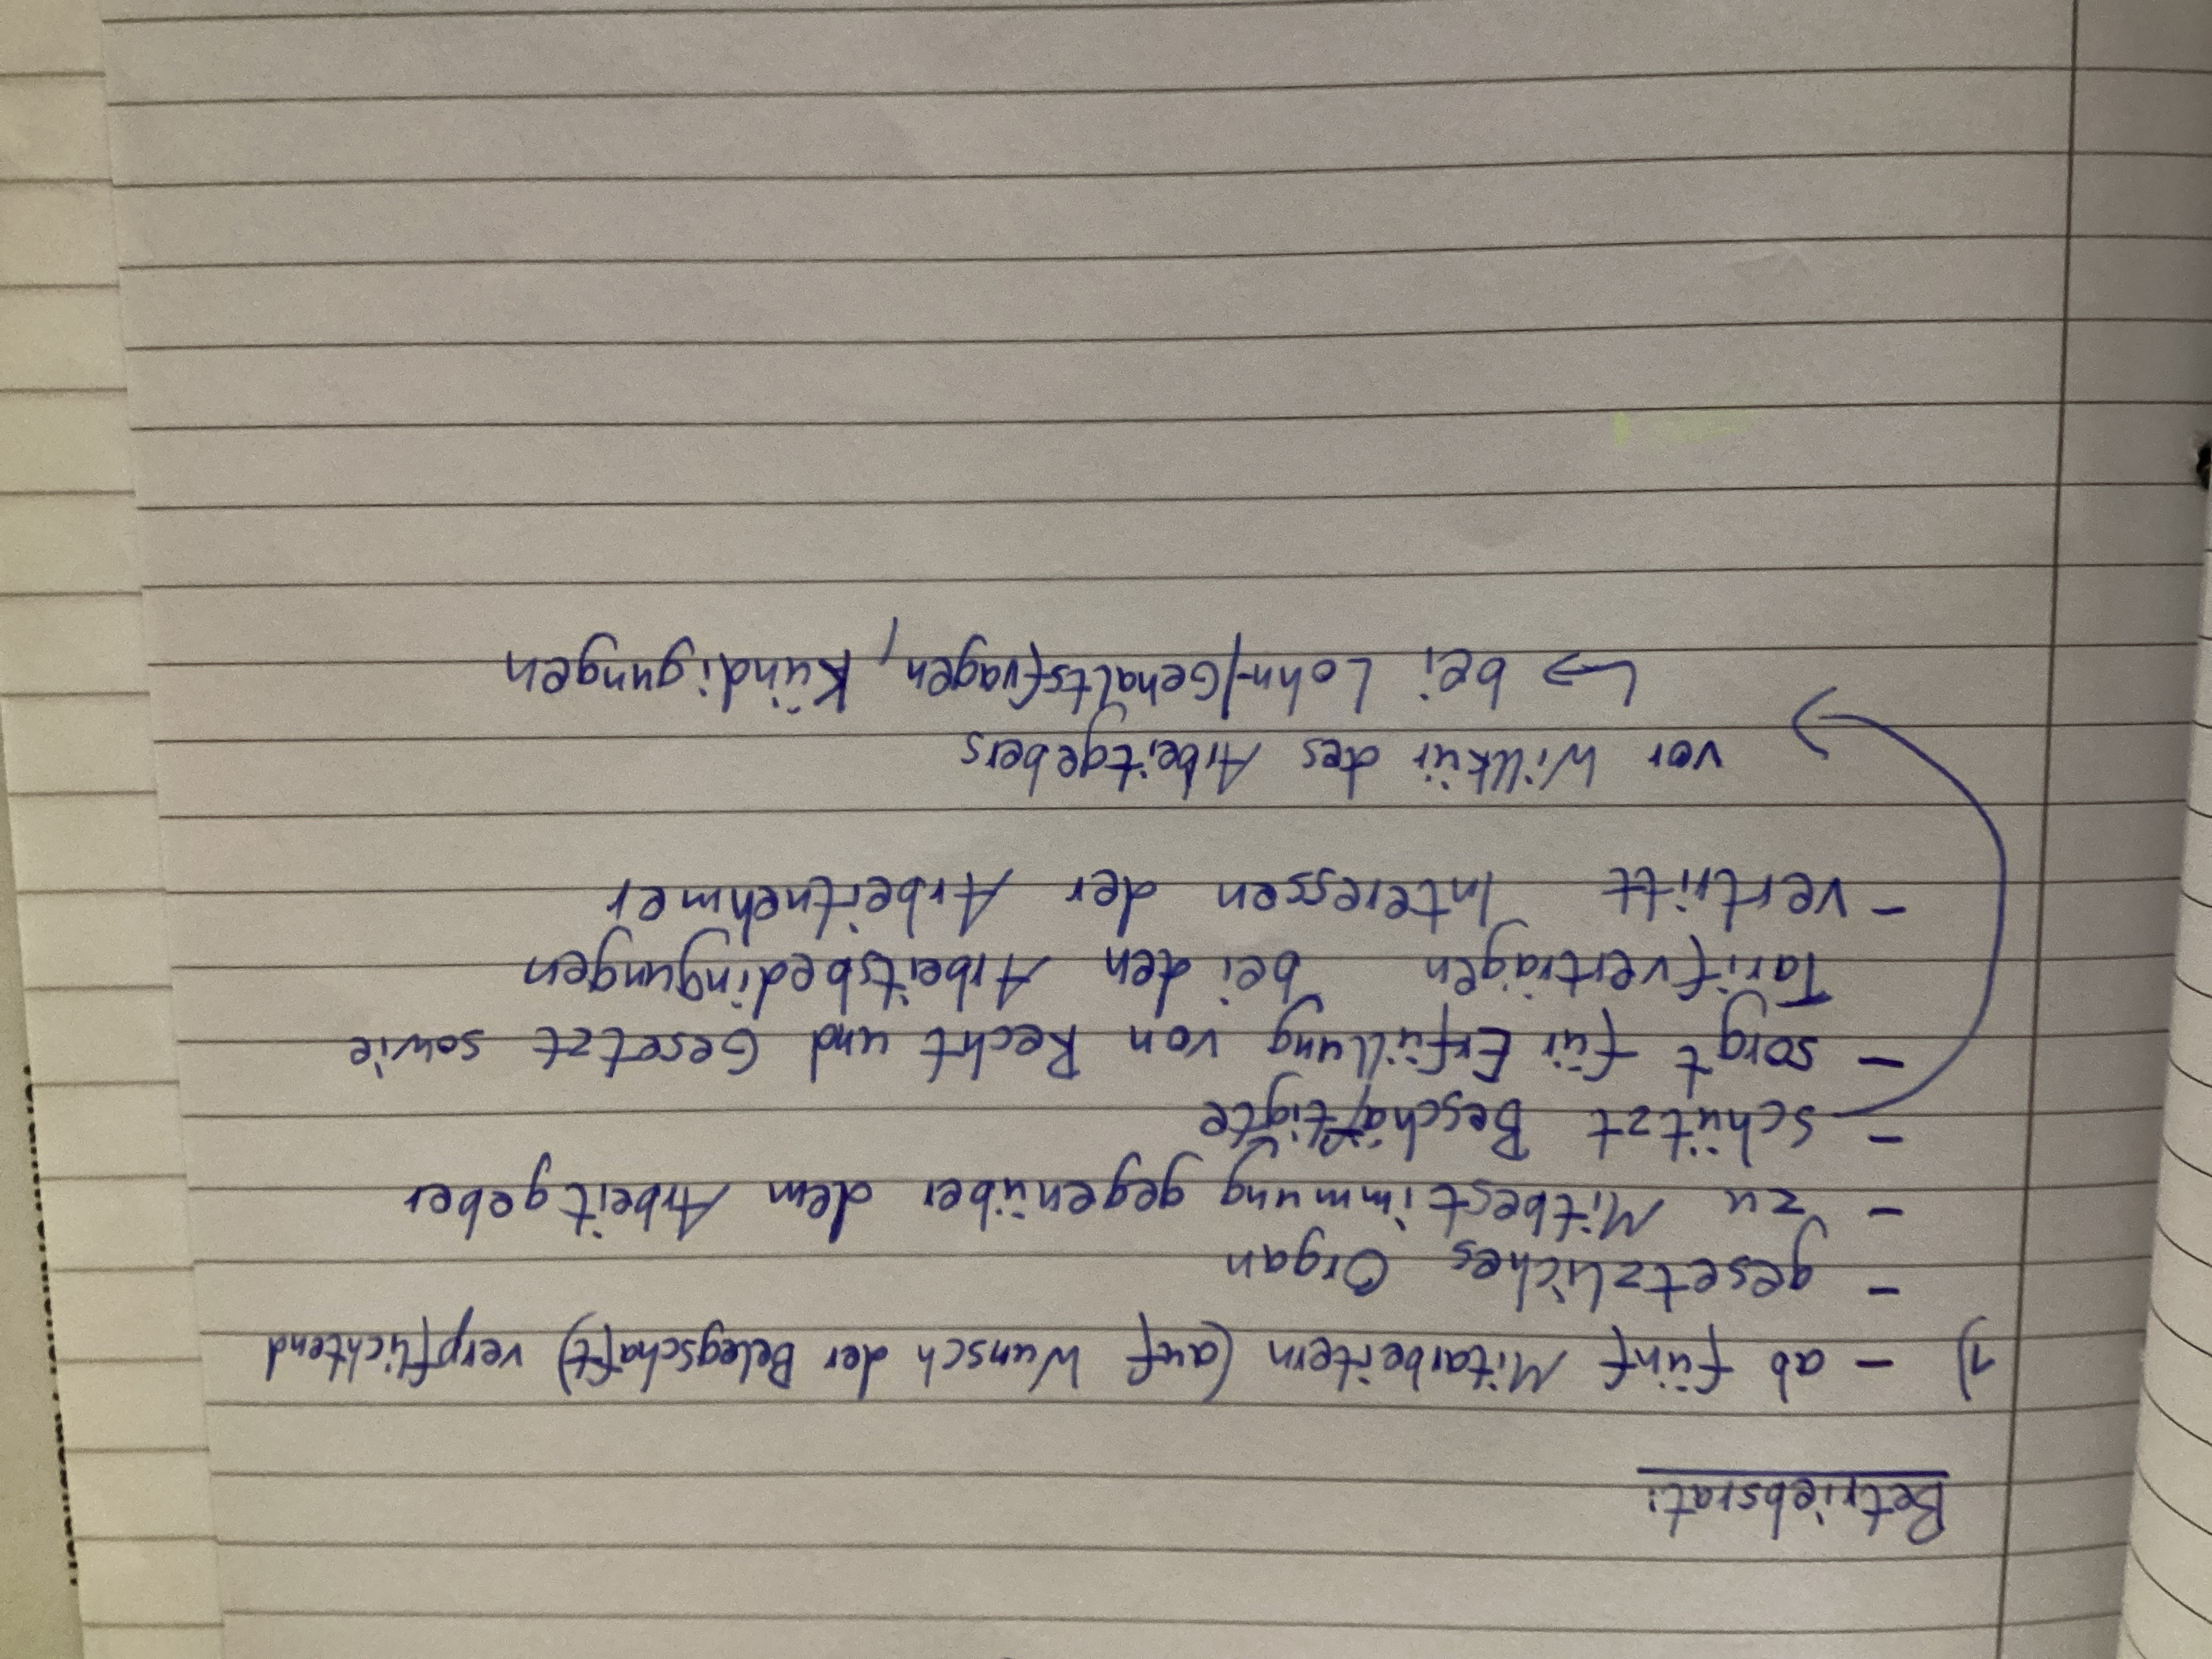 Betriebsrat:
1) - ab fünf Mitarbeitern (auf Wunsch der Belegschaft) verpflichtend
- gesetzliches Organ
- zu Mitbestimmung gegenüber dem Arbeitgeber
- schützt Beschäftigte
- sorgt für Erfüllung von Recht und Gesetzt sowie
Tarifverträgen bei den Arbeitsbedingungen
- vertritt Interessen der Arbeitnehmer
vor Willkür des Arbeitgebers
↳ bei Lohn-/Gehaltsfragen, Kündigungen